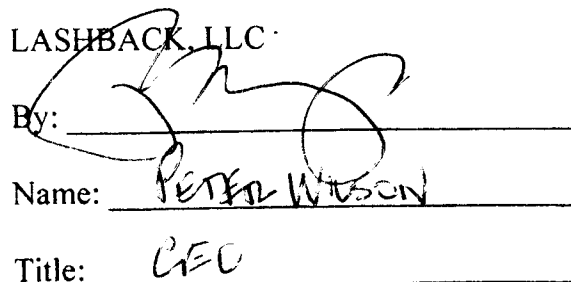 LASHBACK, LLC
By:
Name: PETER WILSON
Title: CEO